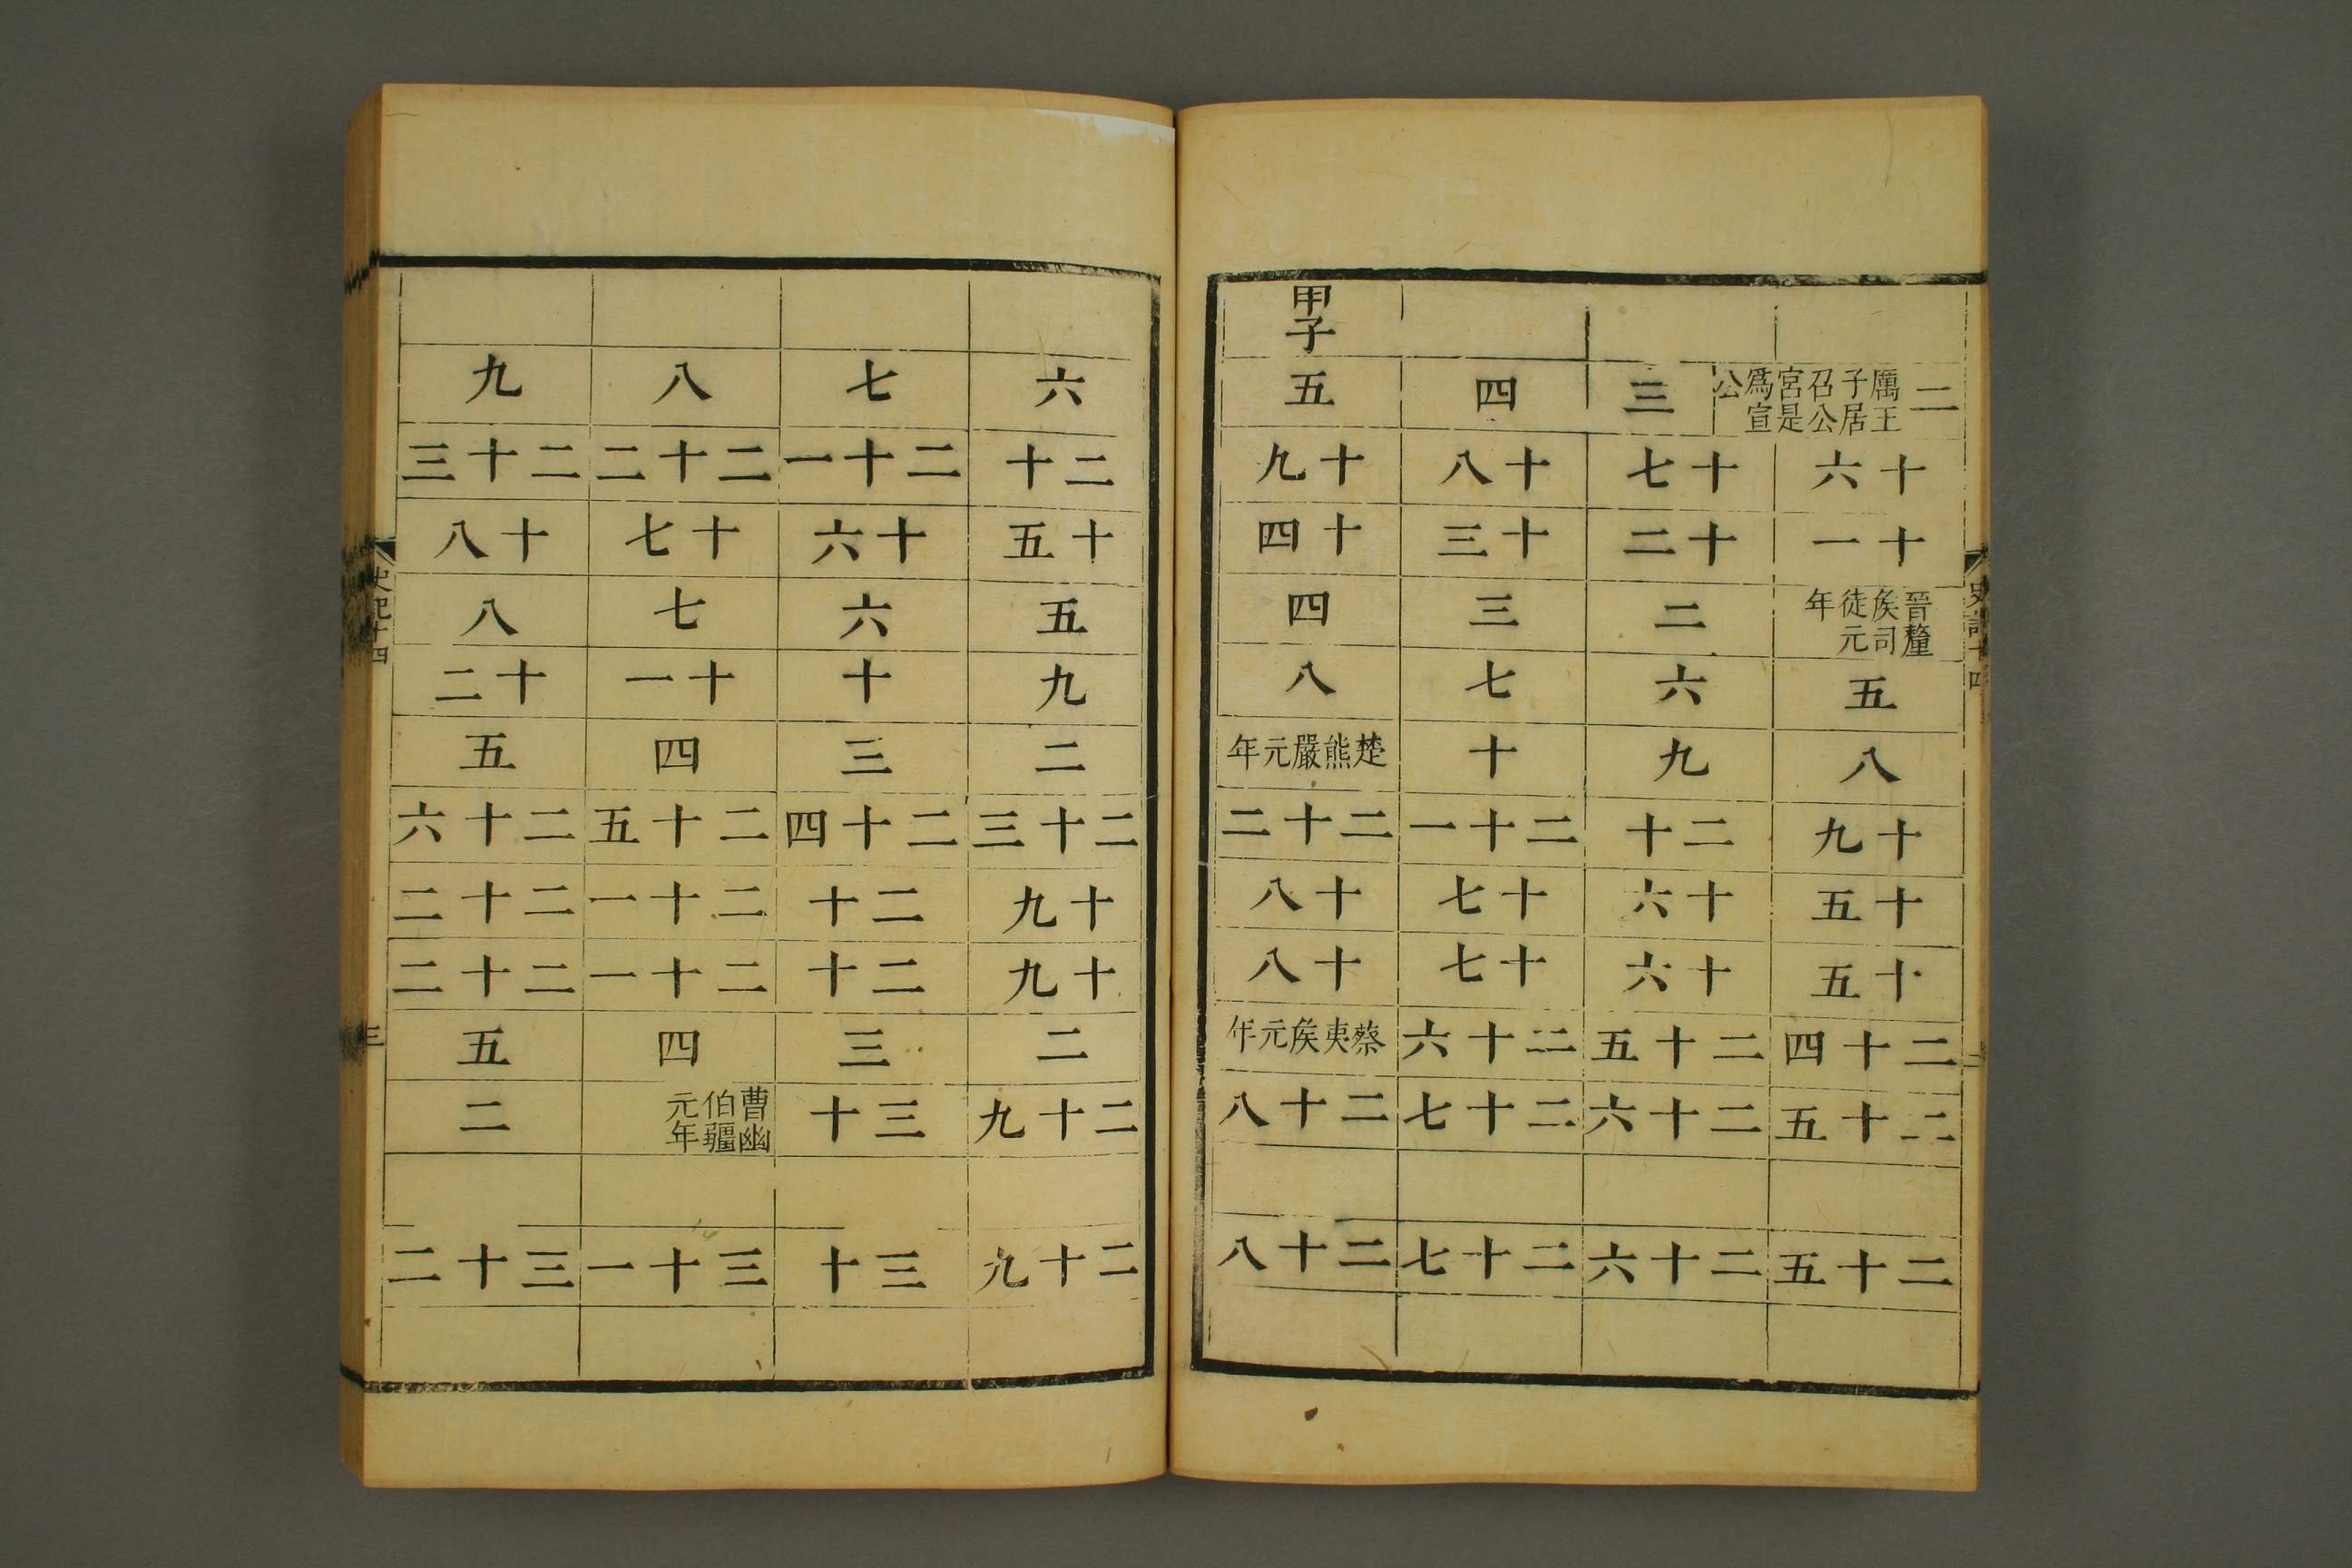 史記十四
二
厲王子居召公宮是爲宣公
十六
十一
晉釐矦司徒元年
五
八
十九
十五
十五
二十四
二十五
二十五
三
十七
十二
二
六
九
二十
十六
十六
二十五
二十六
二十六
四
十八
十三
三
七
十
二十一
十七
十七
二十六
二十七
二十七
甲子
五
十九
十四
四
八
楚熊嚴元年
二十二
十八
十八
蔡夷矦元年
二十八
二十八
六
二十
十五
五
九
二
二十三
十九
十九
二
二十九
二十九
七
二十一
十六
六
十
三
二十四
二十
二十
三
三十
三十
八
二十二
十七
七
十一
四
二十五
二十一
二十一
四
曹幽伯疆元年
三十一
九
二十三
十八
八
十二
五
二十六
二十二
二十二
五
二
三十二
史記十四
三